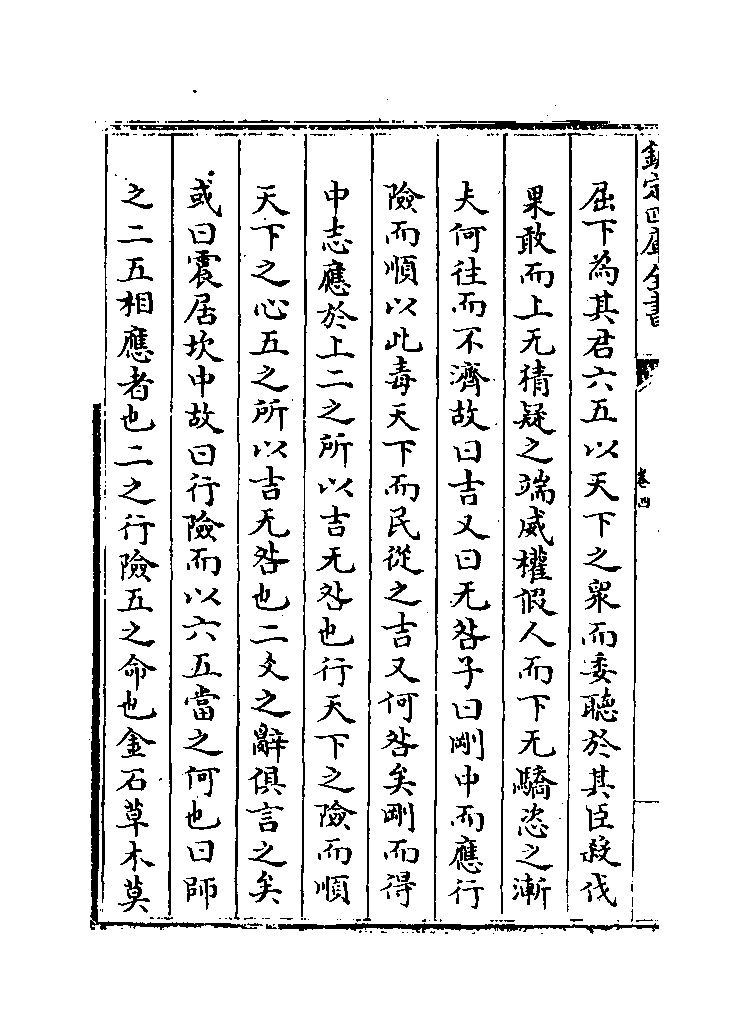 欽定四庫全書
卷四
屈下為其君六五以天下之衆而委聽於其臣殺伐
果敢而上无猜疑之端威權假人而下无驕恣之漸
夫何往而不濟故曰吉又曰无咎子曰剛中而應行
險而順以此毒天下而民從之吉又何咎矣剛而得
中志應於上二之所以吉无咎也行天下之險而順
天下之心五之所以吉无咎也二爻之辭俱言之矣
或曰震居坎中故曰行險而以六五當之何也曰師
之二五相應者也二之行險五之命也金石草木莫